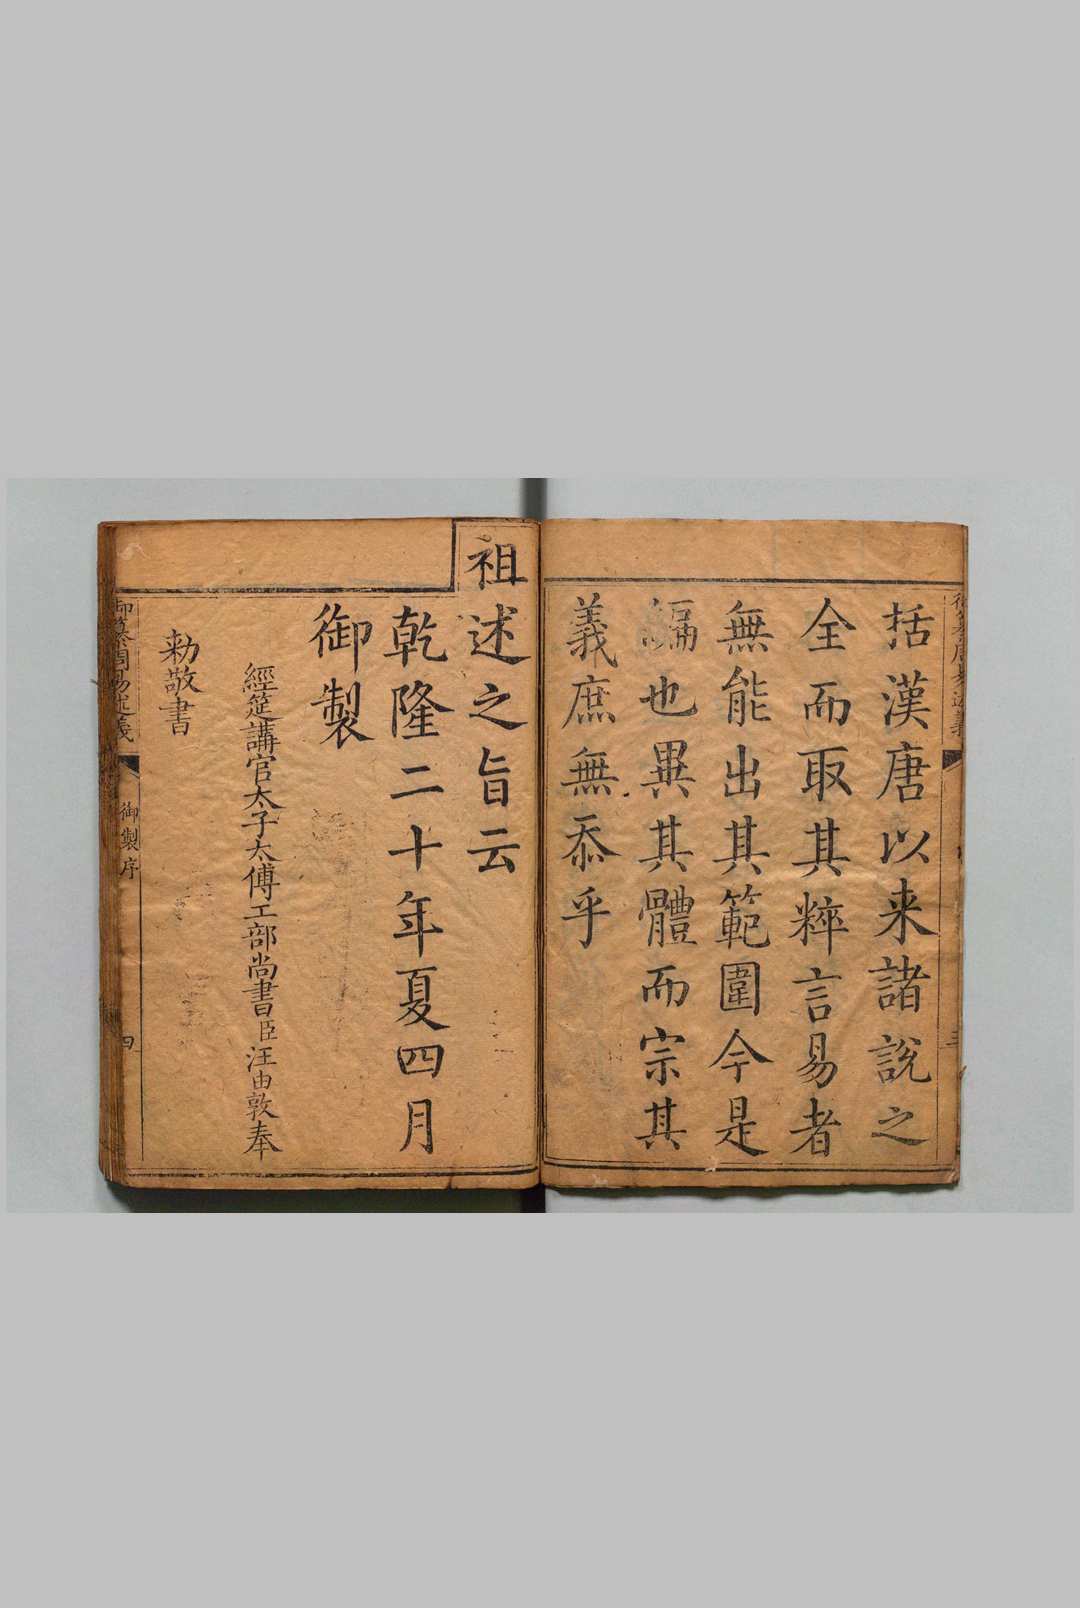 括漢唐以来諸說之
全而取其粹言易者
無能出其範圍今是
編也異其體而宗其
義庶無忝乎
祖述之旨云
乾隆二十年夏四月
御製
經筵講官太子太傅工部尚書臣汪由敦奉
勑敬書
御纂周易述義
御製序
四